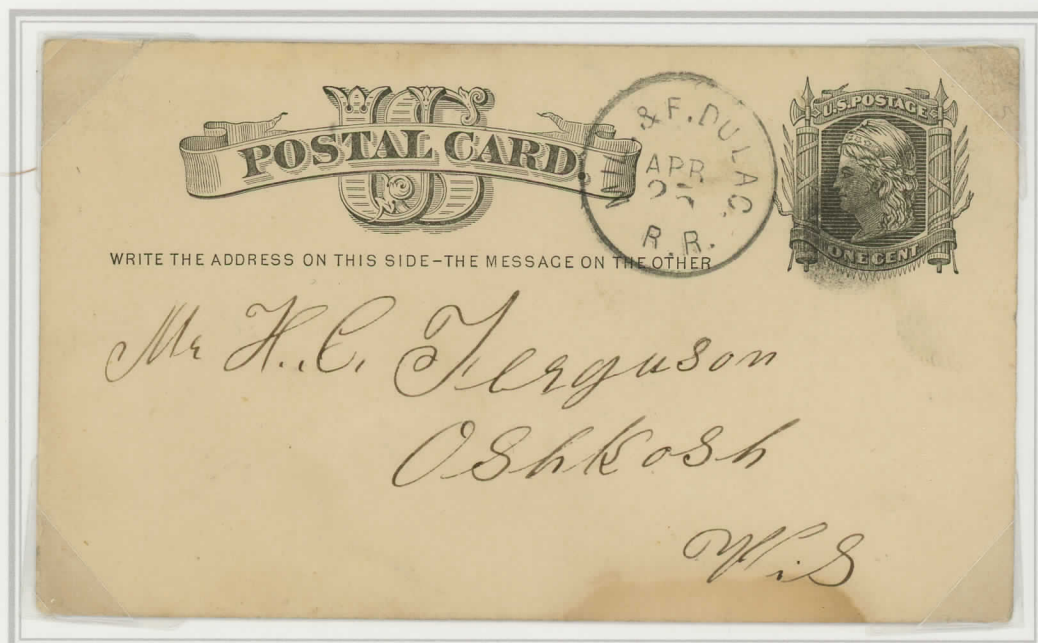 US
POSTAL CARD.
MIL. & F. DU LAC.
APR
25
R. R.
U.S. POSTAGE
ONE CENT
WRITE THE ADDRESS ON THIS SIDE-THE MESSAGE ON THE OTHER
Mr H. C. Ferguson
Oshkosh
Wis